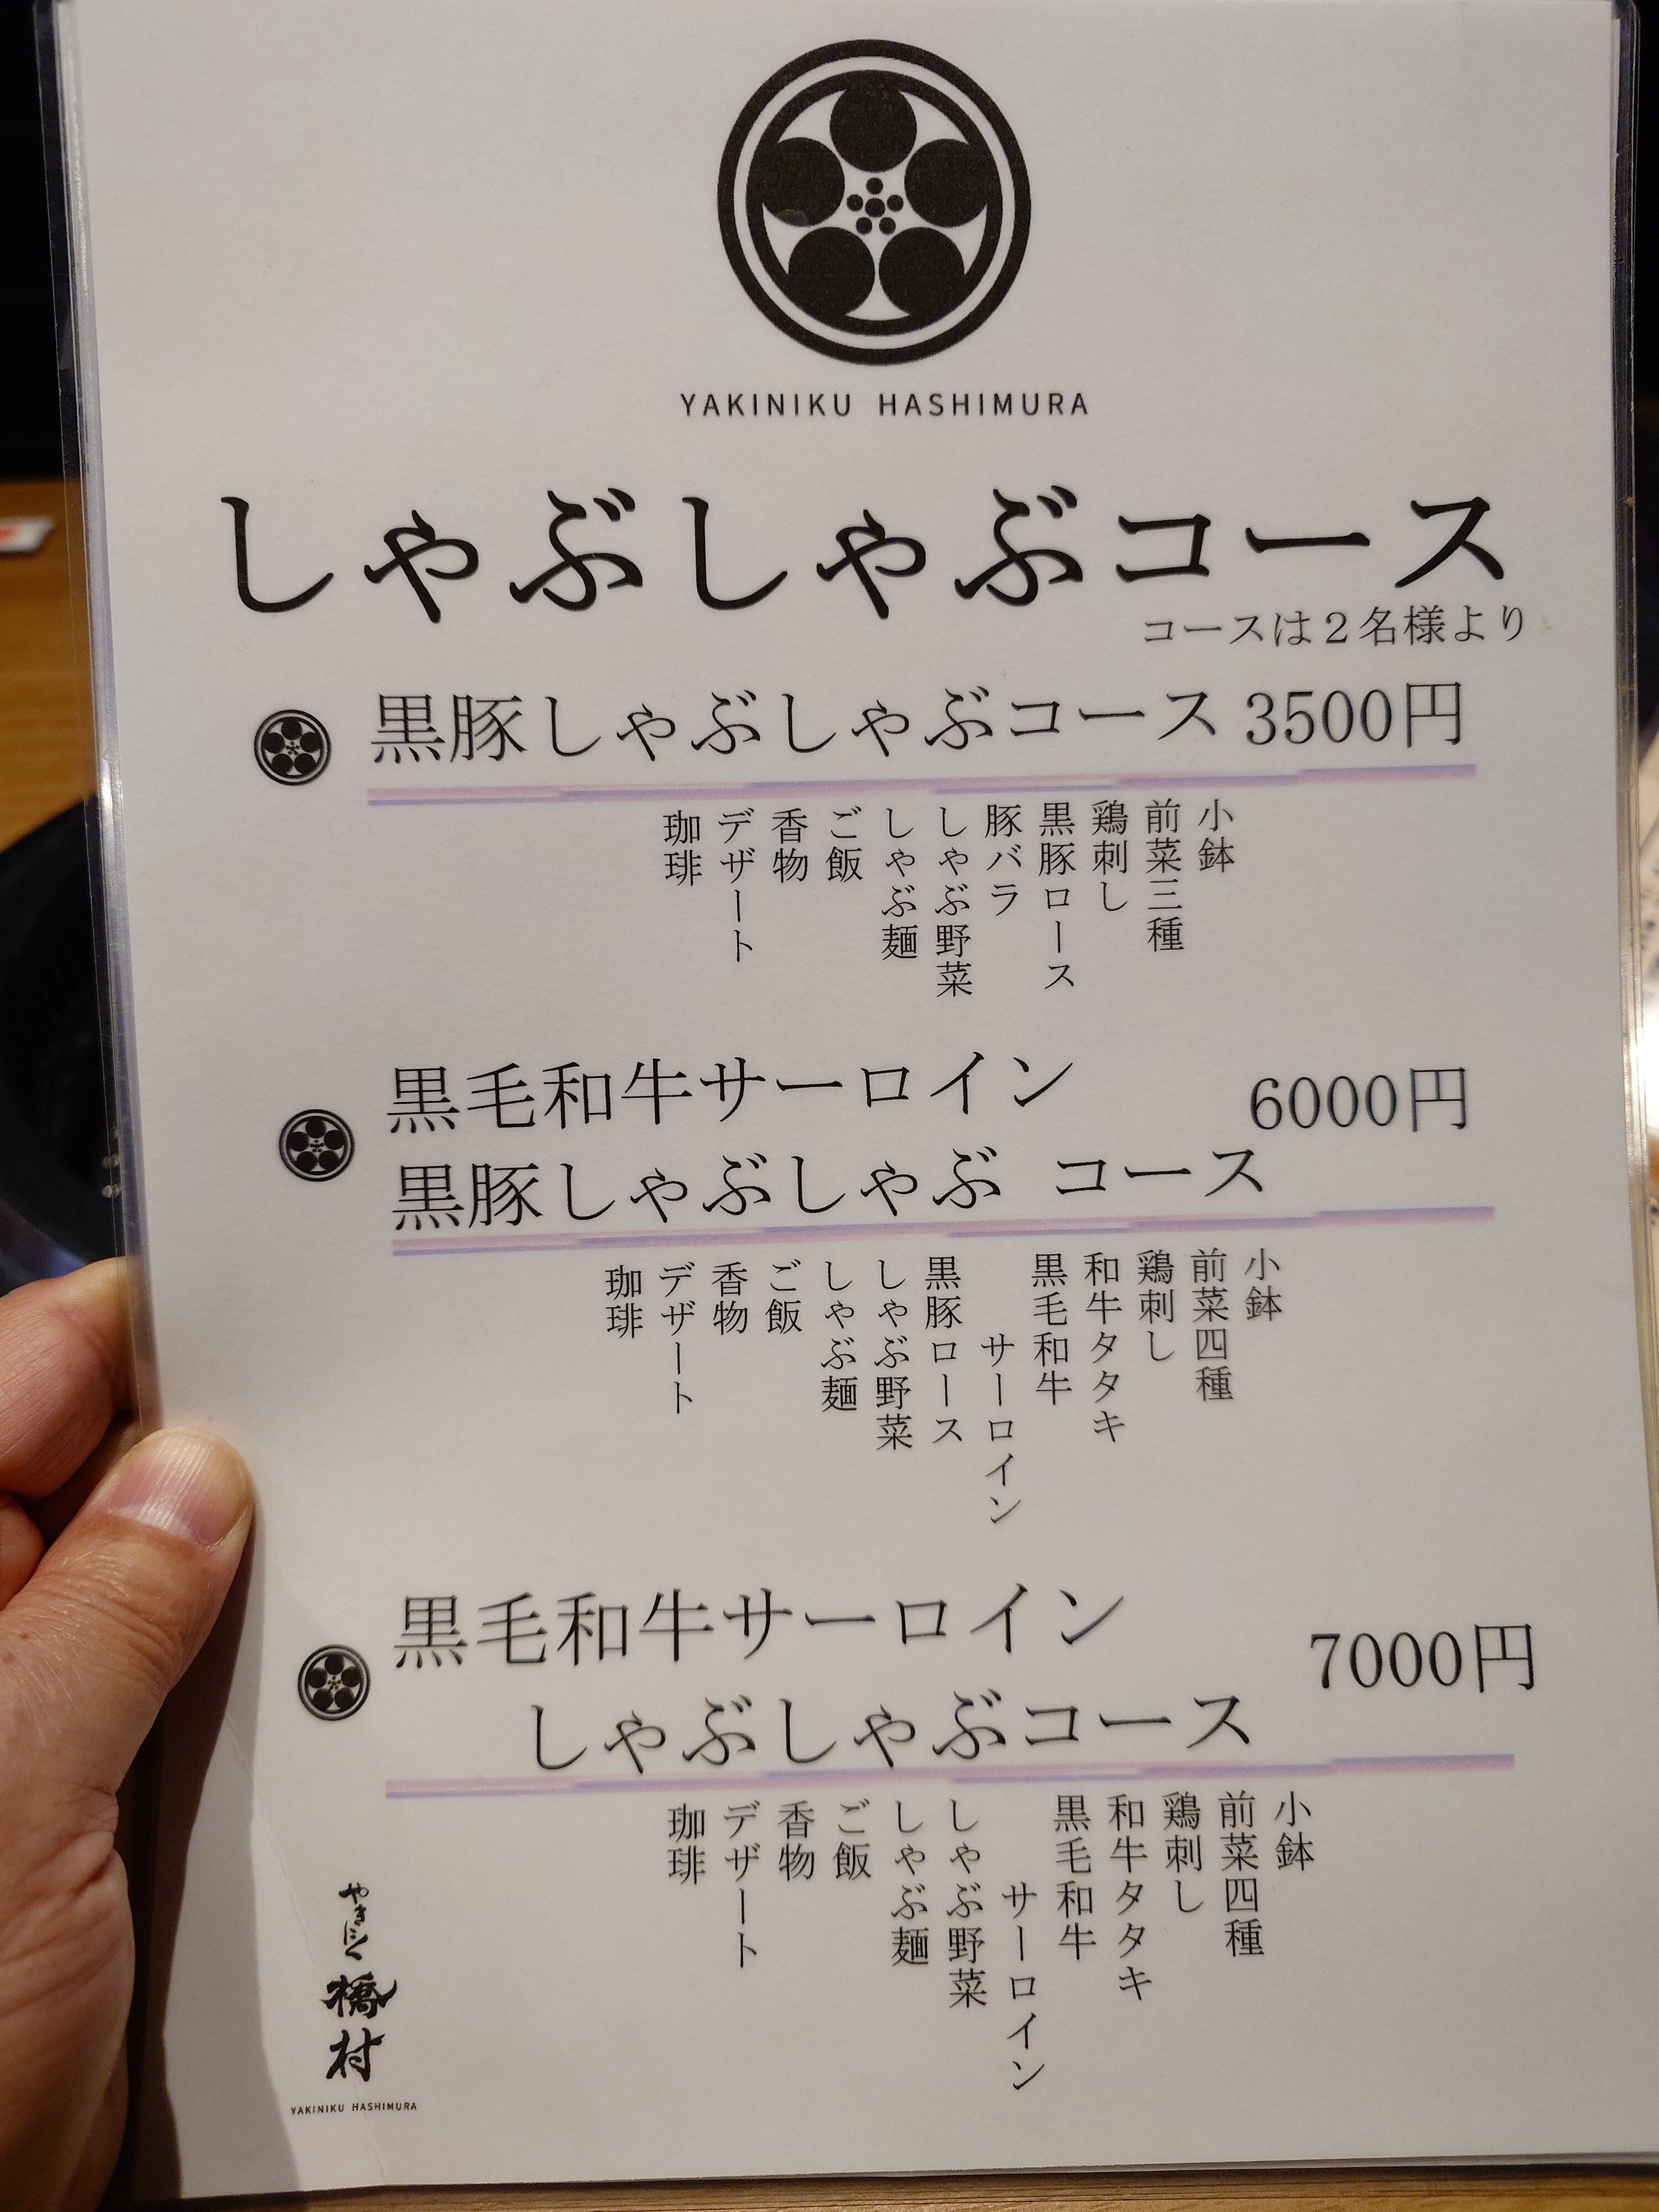 YAKINIKU HASHIMURA
しゃぶしゃぶコース
コースは２名様より
黒豚しゃぶしゃぶコース 3500円
小鉢
前菜三種
鶏刺し
黒豚ロース
豚バラ
しゃぶ野菜
しゃぶ麺
ご飯
香物
デザート
珈琲
黒毛和牛サーロイン
黒豚しゃぶしゃぶ コース
6000円
小鉢
前菜四種
鶏刺し
和牛タタキ
黒毛和牛
サーロイン
黒豚ロース
しゃぶ野菜
しゃぶ麺
ご飯
香物
デザート
珈琲
黒毛和牛サーロイン
しゃぶしゃぶコース
7000円
小鉢
前菜四種
鶏刺し
和牛タタキ
黒毛和牛
サーロイン
しゃぶ野菜
しゃぶ麺
ご飯
香物
デザート
珈琲
やきにく
橋村
YAKINIKU HASHIMURA